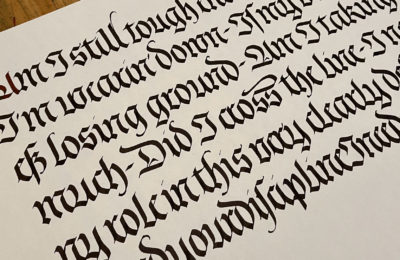 Am I still tough
I'm wearin' down-Is my
losing ground-Am I taking
much-Did I cross the line-I
my role in this very clearly de
d your discipline I need